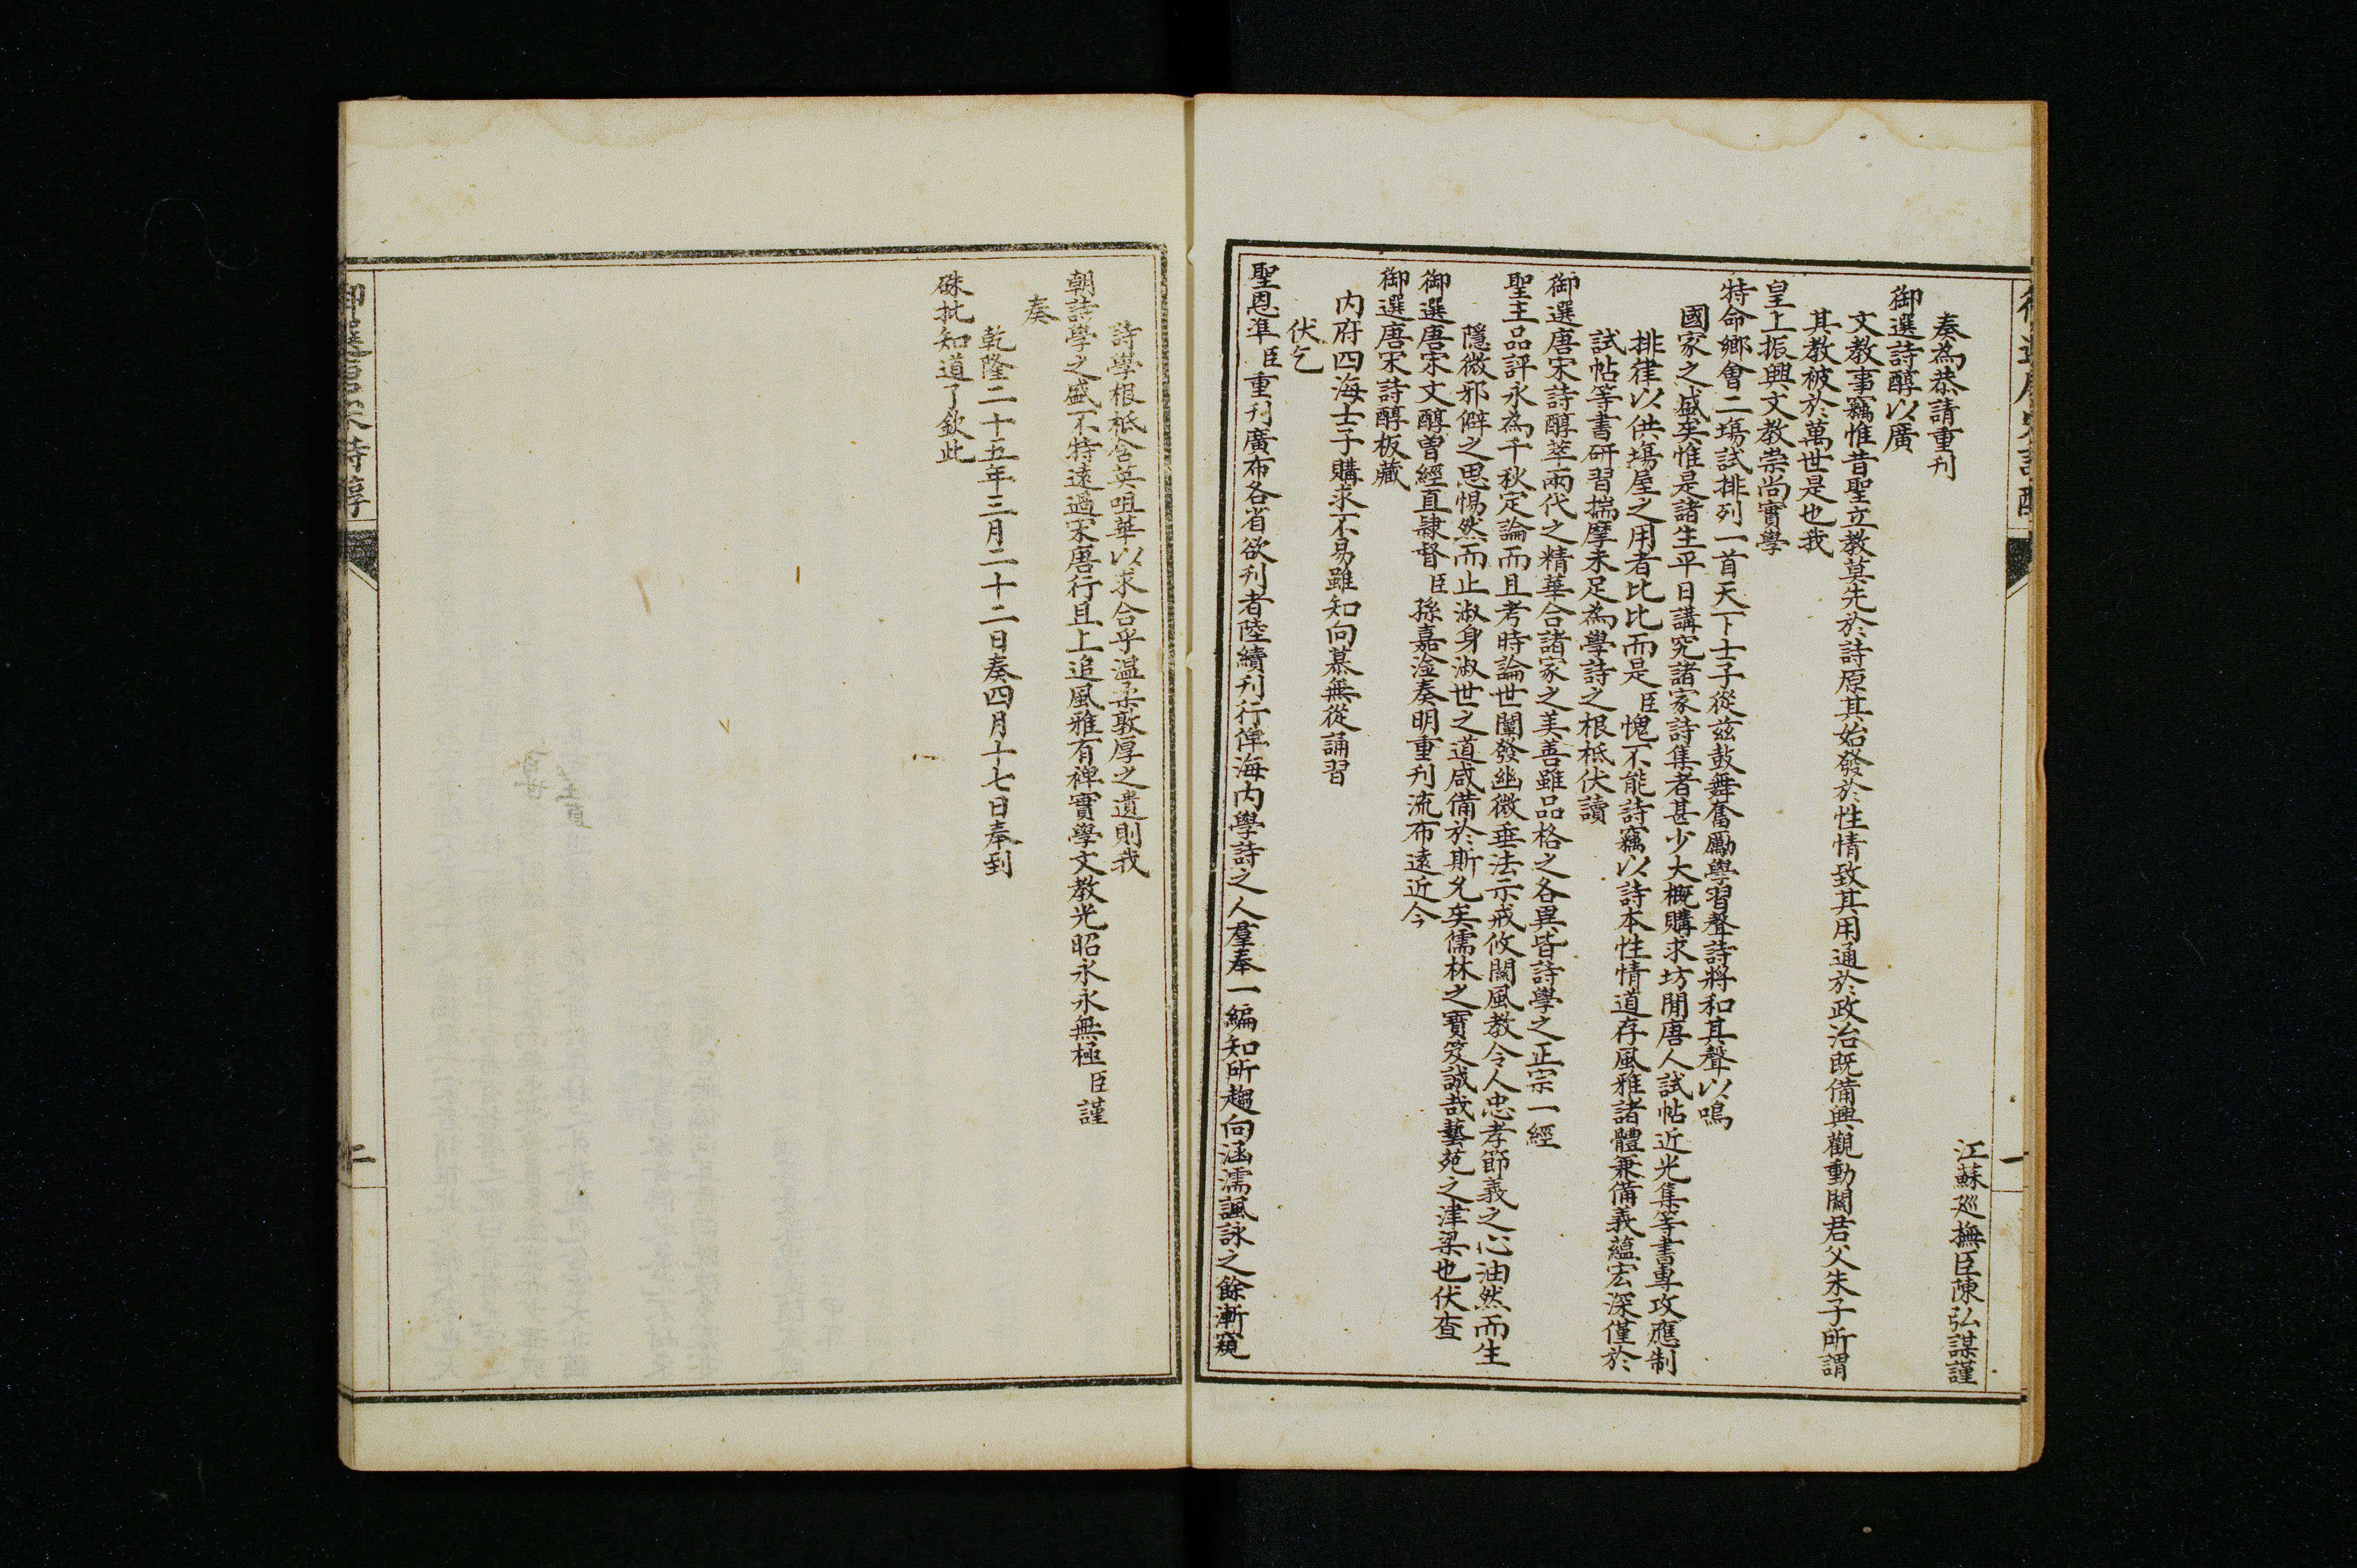 江蘇巡撫臣陳弘謀謹
奏為恭請重刋
御選詩醇以廣
文教事竊惟昔聖立教莫先於詩原其始發於性情致其用通於政治既備興觀動關君父朱子所謂
其教被於萬世是也我
皇上振興文教崇尚實學
特命鄉會二塲試排列一首天下士子從兹鼓舞奮勵學習聲詩將和其聲以鳴
國家之盛矣惟是諸生平日講究諸家詩集者甚少大概購求坊間唐人試帖近光集等書專攻應制
排律以供塲屋之用者比比而是臣愧不能詩竊以詩本性情道存風雅諸體兼備義蘊宏深僅於
試帖等書研習揣摩未足為學詩之根柢伏讀
御選唐宋詩醇萃兩代之精華合諸家之美善雖品格之各異皆詩學之正宗一經
聖主品評永為千秋定論而且考時論世闡發幽微垂法示戒攸關風教令人忠孝節義之心油然而生
隱微邪僻之思惕然而止淑身淑世之道咸備於斯允矣儒林之寶笈誠哉藝苑之津梁也伏查
御選唐宋文醇曽經直隸督臣孫嘉淦奏明重刋流布遠近今
御選唐宋詩醇板藏
内府四海士子購求不易雖知向慕無從誦習
伏乞
聖恩準臣重刋廣布各省欲刋者陸續刋行俾海内學詩之人羣奉一編知所趨向涵濡諷詠之餘漸窺
詩學根柢含英咀華以求合乎温柔敦厚之遺則我
朝詩學之盛不特遠過宋唐行且上追風雅有裨實學文教光昭永永無極臣謹
奏
乾隆二十五年三月二十二日奏四月十七日奉到
硃批知道了欽此
御選唐宋詩醇
二